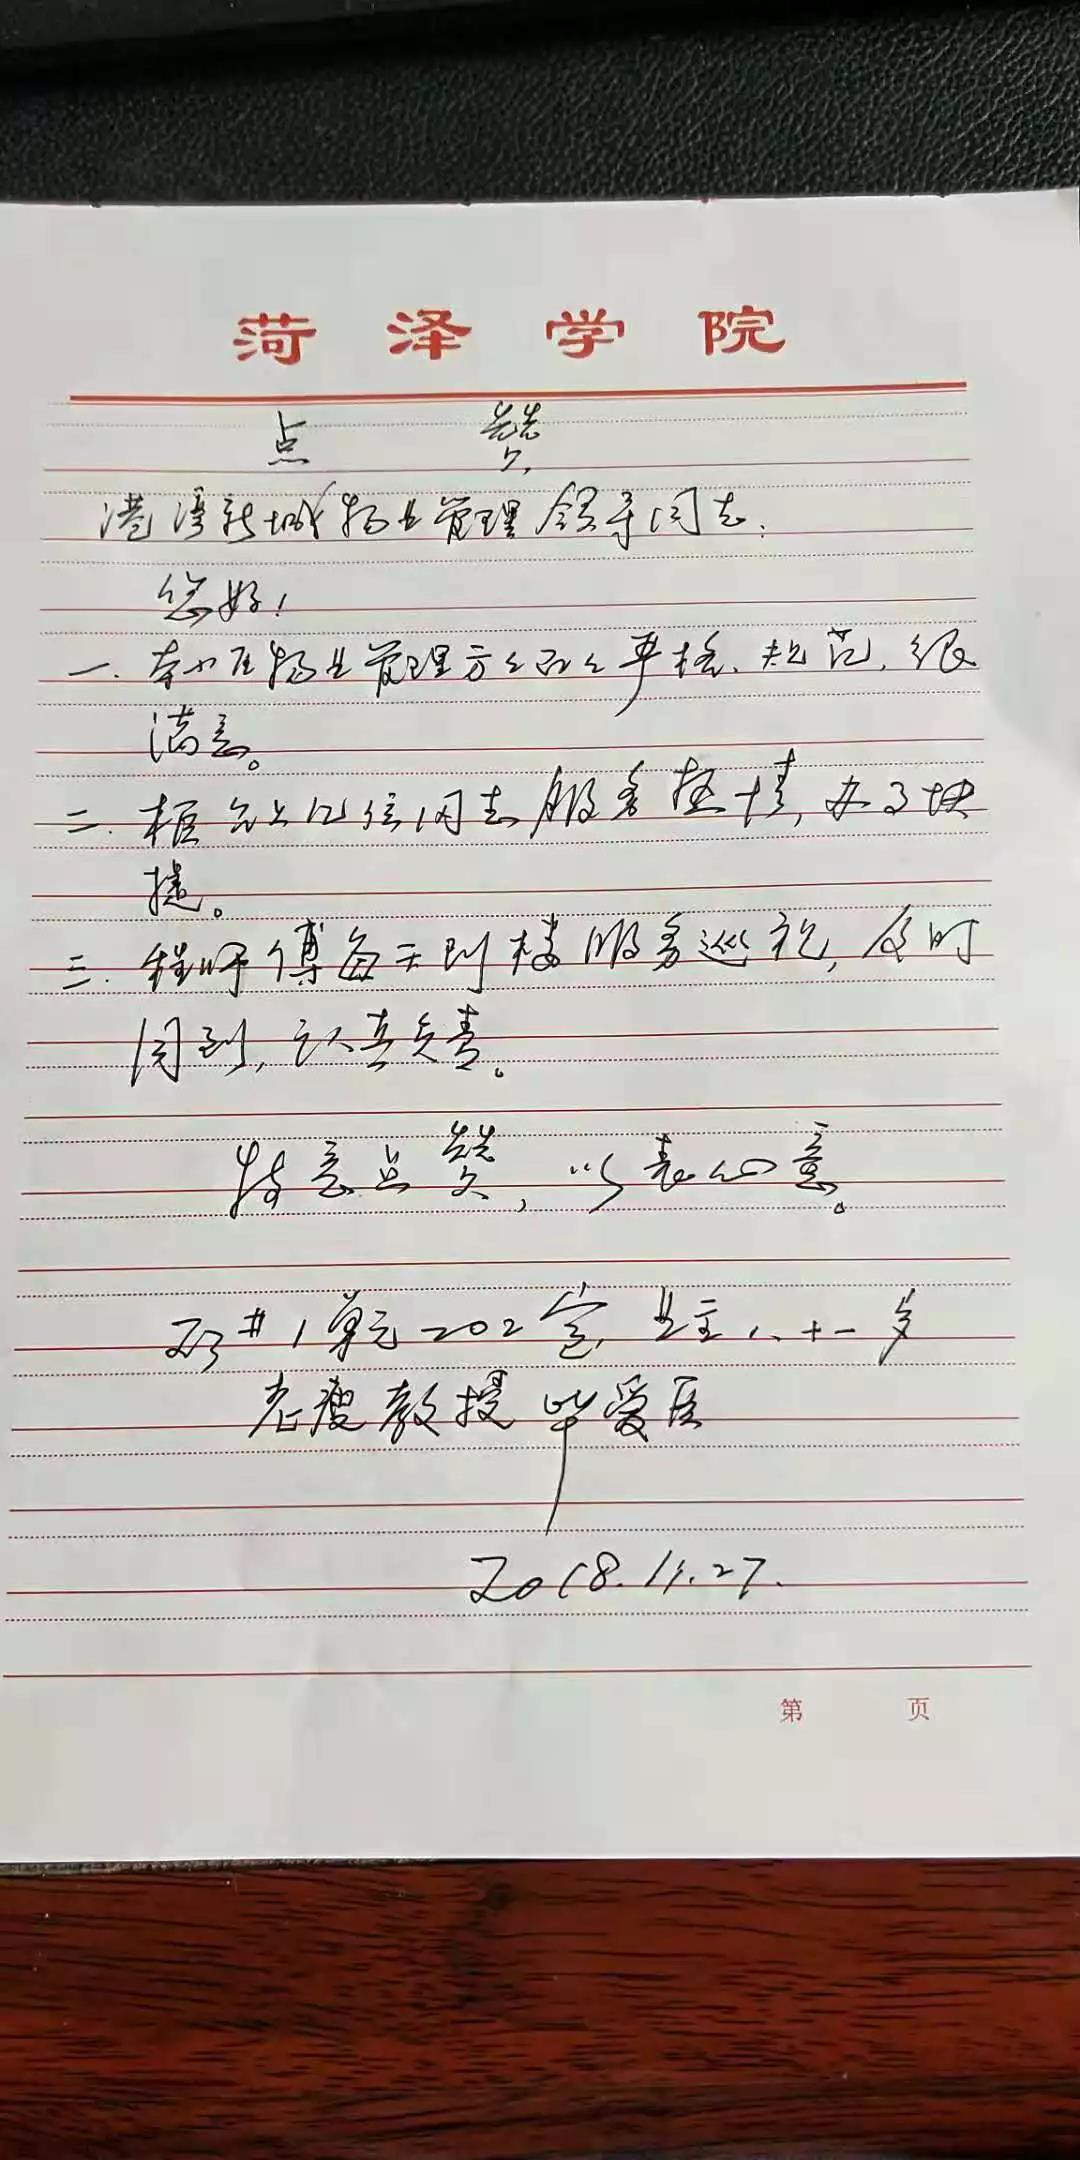 菏泽学院
点 赞
港湾新城物业管理领导同志:
您好!
一.本小区物业管理方方面面严格、规范,很
满意。
二.柜台上几位同志服务热情,办事快
捷。
三.程师傅每天到楼服务巡视,及时
周到,认真负责。
特意点赞,以表心意。
#1单元202室,业主八十一岁
老瘦教授 毕爱臣
2018.11.27.
第 页